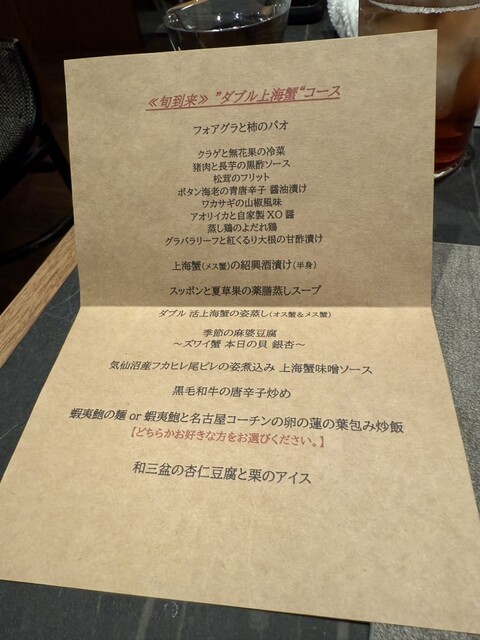 ≪旬到来≫ "ダブル上海蟹"コース
フォアグラと柿のパオ
クラゲと無花果の冷菜
猪肉と長芋の黒酢ソース
松茸のフリット
ボタン海老の青唐辛子 醤油漬け
ワカサギの山椒風味
アオリイカと自家製XO醤
蒸し鶏のよだれ鶏
グラバラリーフと紅くるり大根の甘酢漬け
上海蟹(メス蟹)の紹興酒漬け(半身)
スッポンと夏草果の薬膳蒸しスープ
ダブル 活上海蟹の姿蒸し(オス蟹&メス蟹)
季節の麻婆豆腐
～ズワイ蟹 本日の貝 銀杏～
気仙沼産フカヒレ尾ビレの姿煮込み 上海蟹味噌ソース
黒毛和牛の唐辛子炒め
蝦夷鮑の麺 or 蝦夷鮑と名古屋コーチンの卵の蓮の葉包み炒飯
【どちらかお好きな方をお選びください。】
和三盆の杏仁豆腐と栗のアイス